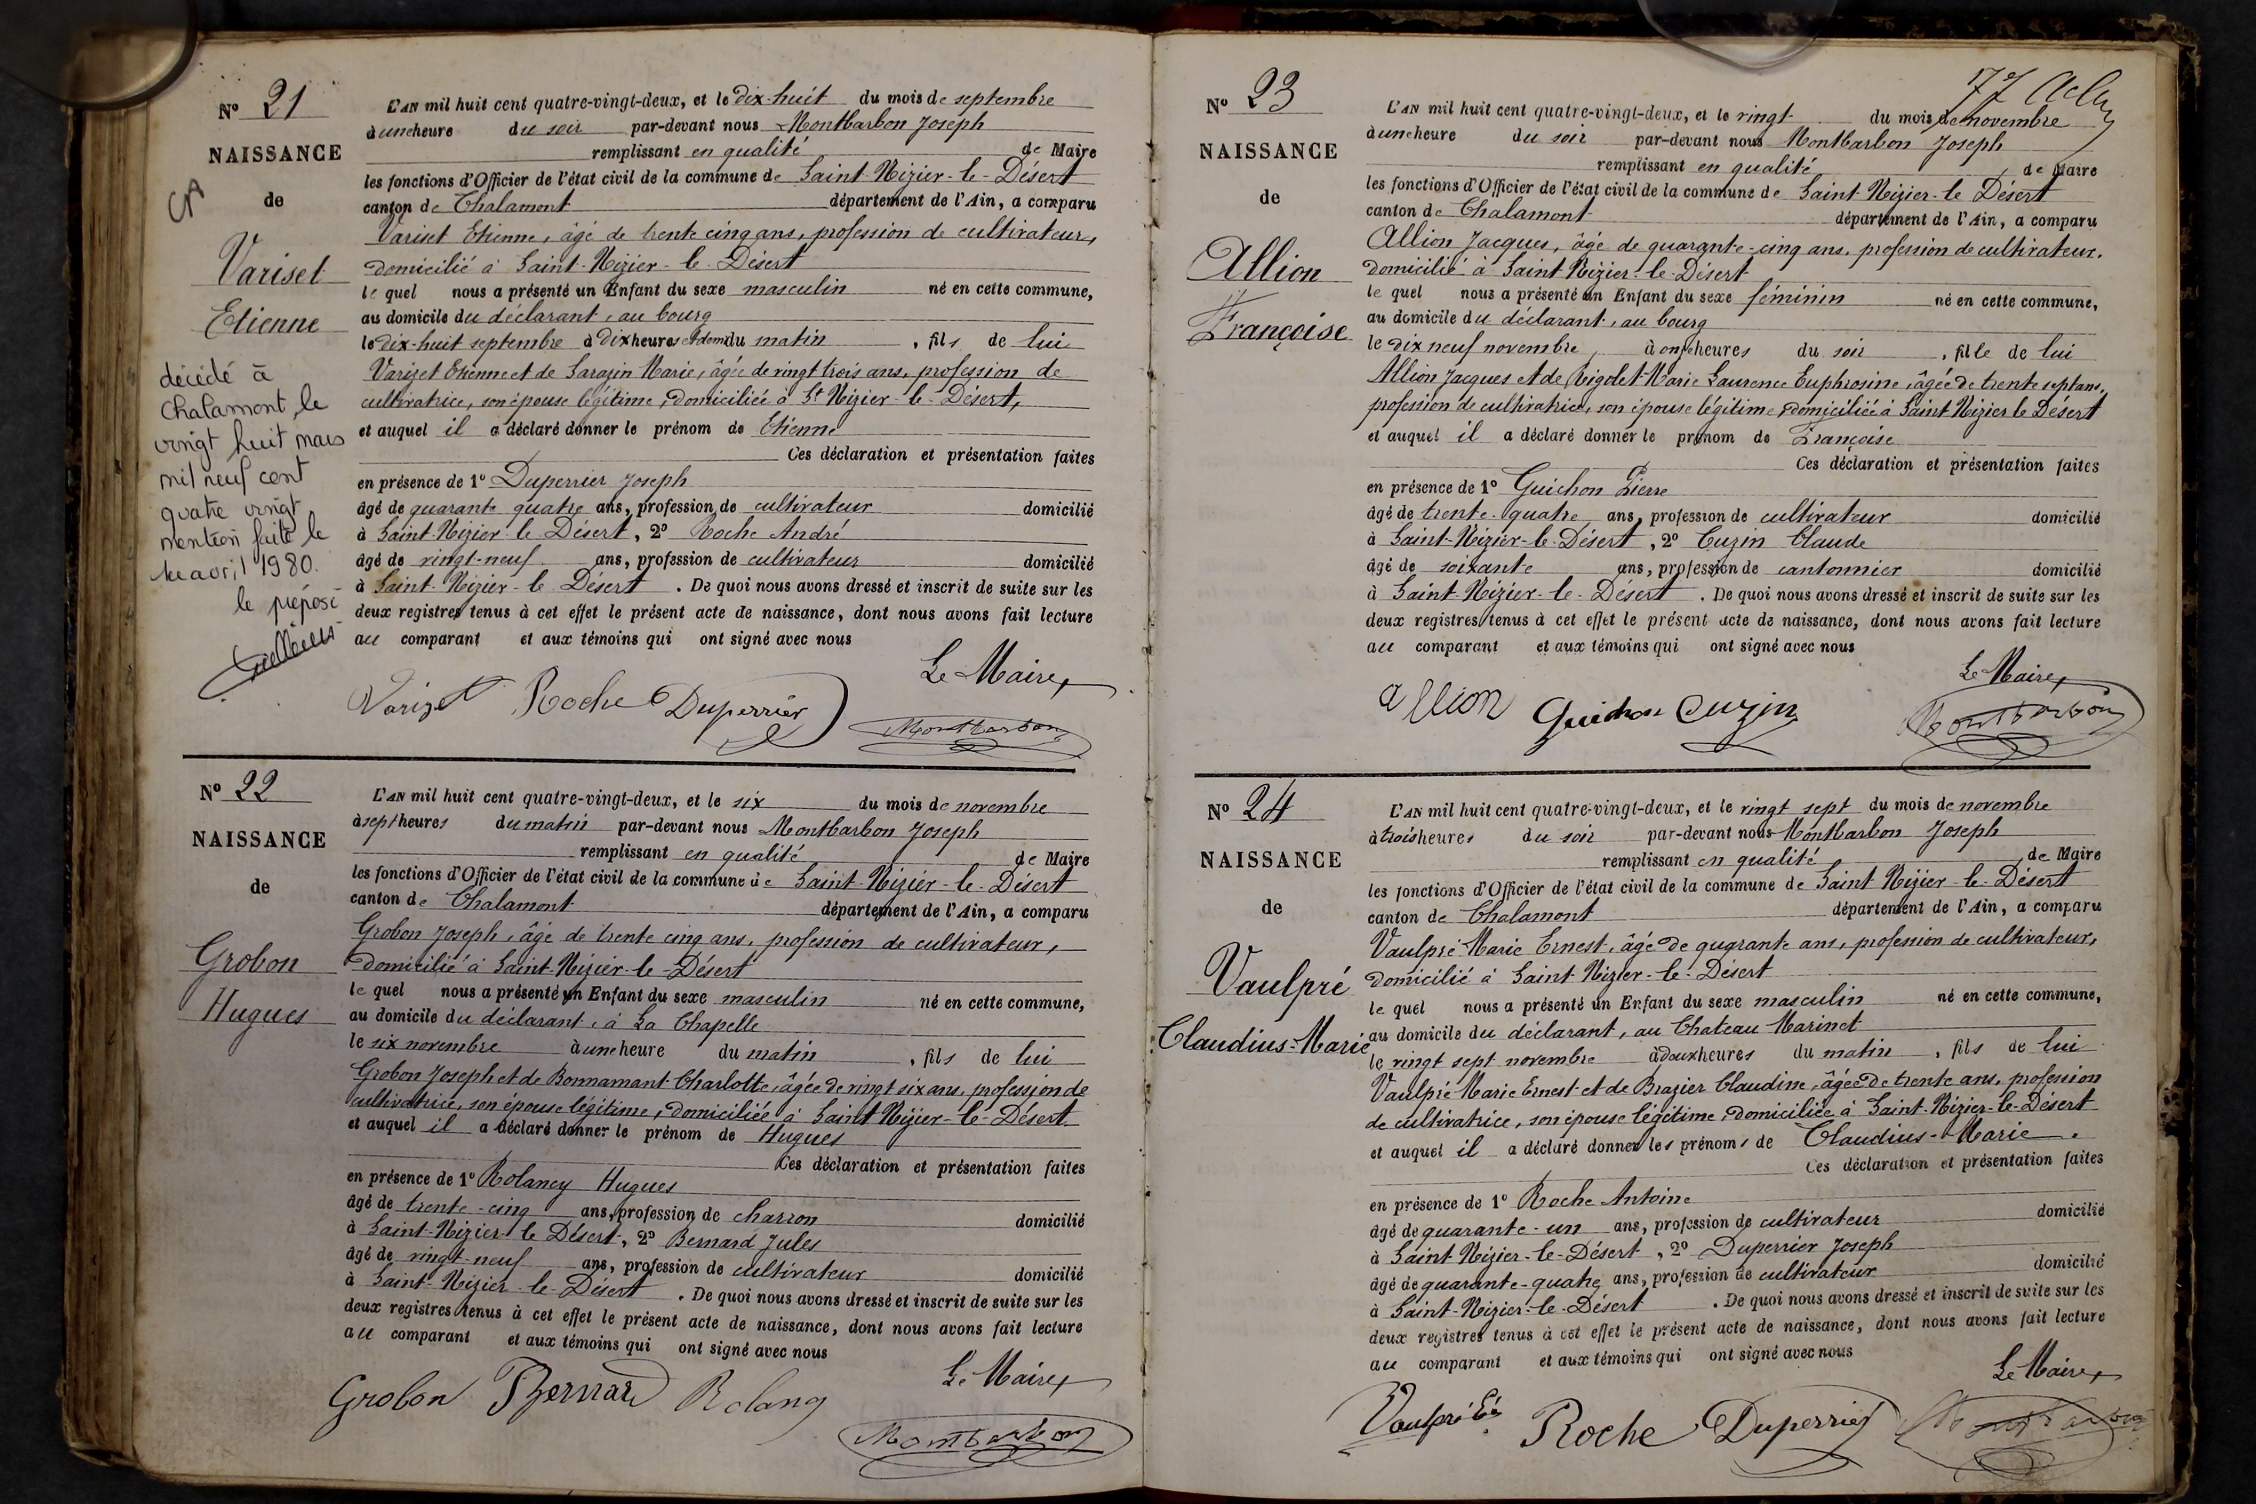 Nº 21
NAISSANCE
de
Variset
Etienne
décédé à
Chalamont le
vingt huit mars
mil neuf cent
quatre vingt
mention faite le
avril 1980.
le préposé
L'AN mil huit cent quatre-vingt-deux, et le dix-huit du mois de septembre
à une heure du soir par-devant nous Montbarbon Joseph
remplissant en qualité de Maire
les fonctions d'Officier de l'état civil de la commune de Saint-Nizier-le-Désert
canton de Chalamont département de l'Ain, a comparu
Variset Etienne, âgé de trente cinq ans, profession de cultivateur,
domicilié à Saint-Nizier-le-Désert
le quel nous a présenté un Enfant du sexe masculin né en cette commune,
au domicile du déclarant, au bourg
le dix-huit septembre à dix heures et demi du matin, fils de lui
Varizet Etienne et de Sarazin Marie, âgée de vingt trois ans, profession de
cultivatrice, son épouse légitime, domiciliée à St Nizier-le-Désert,
et auquel il a déclaré donner le prénom de Etienne
Ces déclaration et présentation faites
en présence de 1º Duperrier Joseph
âgé de quarante quatre ans, profession de cultivateur domicilié
à Saint-Nizier-le Désert, 2º Roche André
âgé de vingt-neuf ans, profession de cultivateur domicilié
à Saint-Nizier-le Désert. De quoi nous avons dressé et inscrit de suite sur les
deux registres tenus à cet effet le présent acte de naissance, dont nous avons fait lecture
au comparant et aux témoins qui ont signé avec nous
Le Maire,
Varizet Roche Duperrier Montbarbon
Nº 22
NAISSANCE
de
Grobon
Hugues
L'AN mil huit cent quatre-vingt-deux, et le six du mois de novembre
à sept heures du matin par-devant nous Montbarbon Joseph
remplissant en qualité de Maire
les fonctions d'Officier de l'état civil de la commune de Saint-Nizier-le-Désert
canton de Chalamont département de l'Ain, a comparu
Grobon Joseph, âgé de trente cinq ans, profession de cultivateur,
domicilié à Saint-Nizier-le-Désert
le quel nous a présenté un Enfant du sexe masculin né en cette commune,
au domicile du déclarant, à La Chapelle
le six novembre à une heure du matin, fils de lui
Grobon Joseph et de Bonnamant Charlotte, âgée de vingt six ans, profession de
cultivatrice, son épouse légitime, domiciliée à Saint Nizier-le-Désert
et auquel il a déclaré donner le prénom de Hugues
Ces déclaration et présentation faites
en présence de 1º Rolancy Hugues
âgé de trente-cinq ans, profession de charron domicilié
à Saint-Nizier-le Désert, 2º Bernard Jules
âgé de vingt-neuf ans, profession de cultivateur domicilié
à Saint-Nizier-le-Désert. De quoi nous avons dressé et inscrit de suite sur les
deux registres tenus à cet effet le présent acte de naissance, dont nous avons fait lecture
au comparant et aux témoins qui ont signé avec nous
Le Maire,
Grobon Bernard Rolancy
Montbarbon
Nº 23
NAISSANCE
de
Allion
Françoise
L'AN mil huit cent quatre-vingt-deux, et le vingt du mois de novembre
à une heure du soir par-devant nous Montbarbon Joseph
remplissant en qualité de Maire
les fonctions d'Officier de l'état civil de la commune de Saint-Nizier-le Désert
canton de Chalamont département de l'Ain, a comparu
Allion Jacques, âgé de quarante-cinq ans, profession de cultivateur.
domicilié à Saint Nizier-le-Désert
le quel nous a présenté un Enfant du sexe féminin né en cette commune,
au domicile du déclarant, au bourg
le dix neuf novembre, à onze heures du soir, fille de lui
Allion Jacques et de Rigolet Marie Laurence Euphrosine, âgée de trente sept ans,
profession de cultivatrice, son épouse légitime, domiciliée à Saint Nizier le Désert
et auquel il a déclaré donner le prénom de Françoise
Ces déclaration et présentation faites
en présence de 1º Guichon Pierre
âgé de trente-quatre ans, profession de cultivateur domicilié
à Saint-Nizier-le-Désert, 2º Cuzin Claude
âgé de soixante ans, profession de cantonnier domicilié
à Saint-Nizier-le-Désert. De quoi nous avons dressé et inscrit de suite sur les
deux registres tenus à cet effet le présent acte de naissance, dont nous avons fait lecture
au comparant et aux témoins qui ont signé avec nous
Le Maire,
allion Guichon Cuzin Montbarbon
Nº 24
NAISSANCE
de
Vaulpré
Claudius-Marie
L'AN mil huit cent quatre-vingt-deux, et le vingt sept du mois de novembre
à trois heures du soir par-devant nous Montbarbon Joseph
remplissant en qualité de Maire
les fonctions d'Officier de l'état civil de la commune de Saint Nizier-le-Désert
canton de Chalamont département de l'Ain, a comparu
Vaulpré Marie Ernest, âgé de quarante ans, profession de cultivateur,
domicilié à Saint Nizier-le-Désert
le quel nous a présenté un Enfant du sexe masculin né en cette commune,
au domicile du déclarant, au Chateau Marinet
le vingt sept novembre à deux heures du matin, fils de lui
Vaulpré Marie Ernest et de Brazier Claudine, âgée de trente ans, profession
de cultivatrice, son épouse légitime, domiciliée à Saint-Nizier-le-Désert
et auquel il a déclaré donner les prénoms de Claudius-Marie.
Ces déclaration et présentation faites
en présence de 1º Roche Antoine
âgé de quarante-un ans, profession de cultivateur domicilié
à Saint Nizier-le-Désert, 2º Duperrier Joseph
âgé de quarante-quatre ans, profession de cultivateur domicilié
à Saint-Nizier-le-Désert. De quoi nous avons dressé et inscrit de suite sur les
deux registres tenus à cet effet le présent acte de naissance, dont nous avons fait lecture
au comparant et aux témoins qui ont signé avec nous
Le Maire,
Vaulpré Roche Duperrier Montbarbon